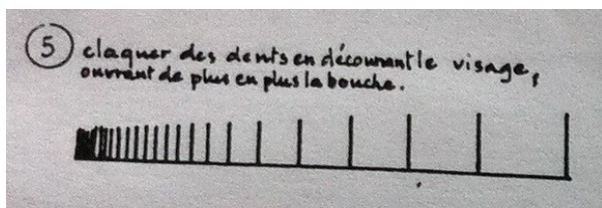 ⑤ claquer des dents en découvrant le visage,
ouvrant de plus en plus la bouche.